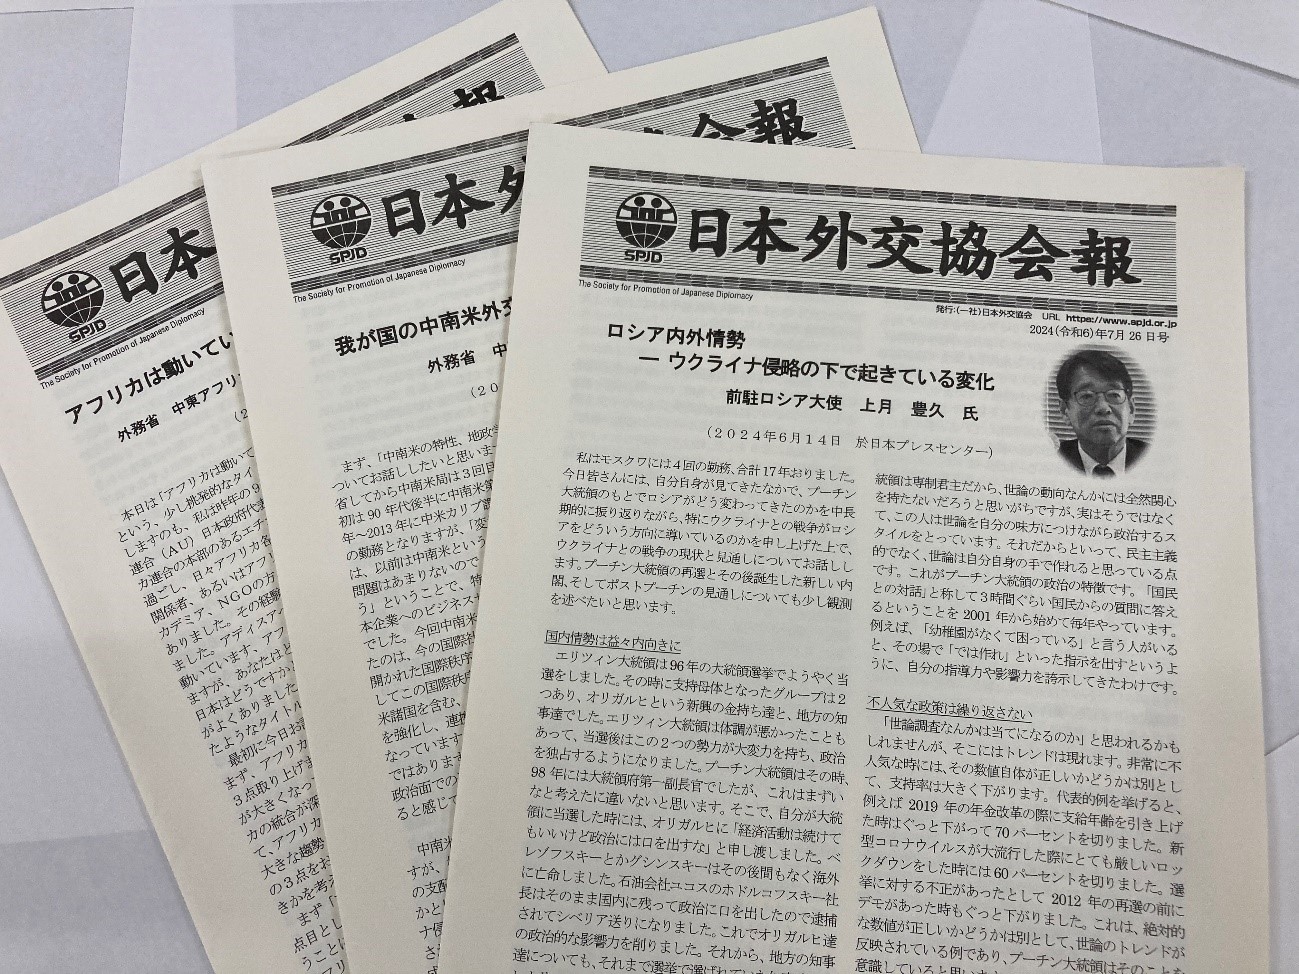 SPJD
日本
The Society for Promotion of Japanese Diplomacy
アフリカは動いてい
外務省 中東アフリ
本日は「アフリカは動いて
という、少し挑発的なタイ
しますのも、私は昨年の9
連合（AU）日本政府代表
カ連合の本部のあるエチ
過ごし、日々アフリカ各
関係者、あるいはアフ
カデミア、NGOの方
ありました。その経験
ました。アディスア
動いています、アフ
ますが、あなたはど
日本はどうですか
がよくありました
たようなタイトル
最初に今日お話
まず、アフリカ
3点取り上げま
が大きくなっ
カの統合が深
て、アフリ
大きな趨勢
の3点をお
きかを考え
まず「
点目とし
うことに
、アフリ
会報
SPJD
日本外
The Society for Promotion of Japanese Diplomacy
我が国の中南米外交
外務省 中
（20
まず、「中南米の特性、地政学
ついてお話ししたいと思いま
省してから中南米局は3回目
初は90年代後半に中南米第
年～2013年に中米カリブ課
の勤務となりますが、「変
は、以前は中南米という
問題はあまりないので
う」ということで、特
本企業へのビジネスサ
でした。今回中南米
たのは、今の国際社
開かれた国際秩序
してこの国際秩序
米諸国を含む、
を強化し、連携
なっています
ではあります
政治面での
ると感じて
中南米
すが、
の支配
かとい
ナ侵
さ
交協会報
SPJD
日本外交協会報
The Society for Promotion of Japanese Diplomacy
発行：(一社)日本外交協会 URL https://www.spjd.or.jp
2024(令和6)年7月26日号
ロシア内外情勢
― ウクライナ侵略の下で起きている変化
前駐ロシア大使 上月 豊久 氏
（2024年6月14日 於日本プレスセンター）
私はモスクワには4回の勤務、合計17年おりました。
今日皆さんには、自分自身が見てきたなかで、プーチン
大統領のもとでロシアがどう変わってきたのかを中長
期的に振り返りながら、特にウクライナとの戦争がロシ
アをどういう方向に導いているのかを申し上げた上で、
ウクライナとの戦争の現状と見通しについてお話しし
ます。プーチン大統領の再選とその後誕生した新しい内
閣、そしてポストプーチンの見通しについても少し観測
を述べたいと思います。
国内情勢は益々内向きに
エリツィン大統領は96年の大統領選挙でようやく当
選をしました。その時に支持母体となったグループは2
つあり、オリガルヒという新興の金持ち達と、地方の知
事達でした。エリツィン大統領は体調が悪かったことも
あって、当選後はこの2つの勢力が大変力を持ち、政治
を独占するようになりました。プーチン大統領はその時、
98年には大統領府第一副長官でしたが、これはまずい
なと考えたに違いないと思います。そこで、自分が大統
領に当選した時には、オリガルヒに「経済活動は続けて
もいいけど政治には口を出すな」と申し渡しました。ベ
レゾフスキーとかグシンスキーはその後間もなく海外
に亡命しました。石油会社ユコスのホドルコフスキー社
長はそのまま国内に残って政治に口を出したので逮捕
されてシベリア送りになりました。これでオリガルヒ達
の政治的な影響力を削りました。それから、地方の知事
達についても、それまで選挙で選ばれていた
統領は専制君主だから、世論の動向なんかには全然関心
を持たないだろうと思いがちですが、実はそうではなく
て、この人は世論を自分の味方につけながら政治するス
タイルをとっています。それだからといって、民主主義
的でなく、世論は自分自身の手で作れると思っている点
です。これがプーチン大統領の政治の特徴です。「国民
との対話」と称して3時間ぐらい国民からの質問に答え
るということを2001年から始めて毎年やっています。
例えば、「幼稚園がなくて困っている」と言う人がいる
と、その場で「では作れ」といった指示を出すというよ
うに、自分の指導力や影響力を誇示してきたわけです。
不人気な政策は繰り返さない
「世論調査なんかは当てになるのか」と思われるかも
しれませんが、そこにはトレンドは現れます。非常に不
人気な時には、その数値自体が正しいかどうかは別とし
て、支持率は大きく下がります。代表的例を挙げると、
例えば2019年の年金改革の際に支給年齢を引き上げ
た時はぐっと下がって70パーセントを切りました。新
型コロナウイルスが大流行した際にとても厳しいロッ
クダウンをした時には60パーセントを切りました。選
挙に対する不正があったとして2012年の再選の前に
デモがあった時もぐっと下がりました。これは、絶対的
な数値が正しいかどうかは別として、世論のトレンドが
反映されている例であり、プーチン大統領はそのことを
意識していると思い